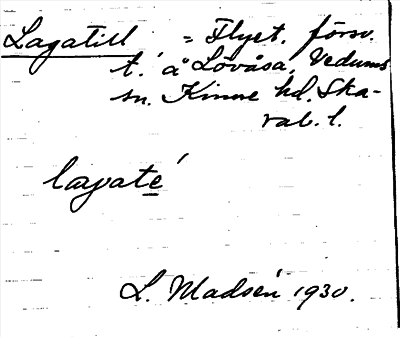 Lagatill = Flyct. försv.
t. å Lövåsa, Vedums
sn. Kinne hd. Ska-
rab. l.
lagaté
L. Madsén 1930.